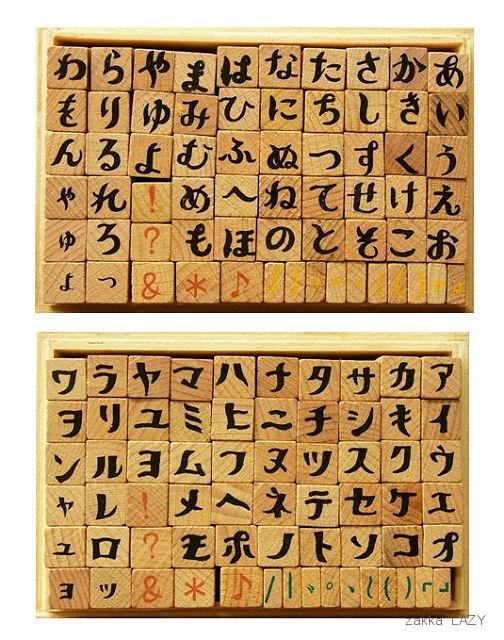 わ ら や ま は な た さ か あ
を り ゆ み ひ に ち し き い
ん る よ む ふ ぬ つ す く う
ゃ れ ! め へ ね て せ け え
ゅ ろ ? も ほ の と そ こ お
ょ っ & * ♪
ワ ラ ヤ マ ハ ナ タ サ カ ア
ヲ リ ユ ミ ヒ ニ チ シ キ イ
ン ル ヨ ム フ ヌ ツ ス ク ウ
ャ レ ! メ ヘ ネ テ セ ケ エ
ュ ロ ? モ ホ ノ ト ソ コ オ
ョ ッ & * ♪
zakka LAZY